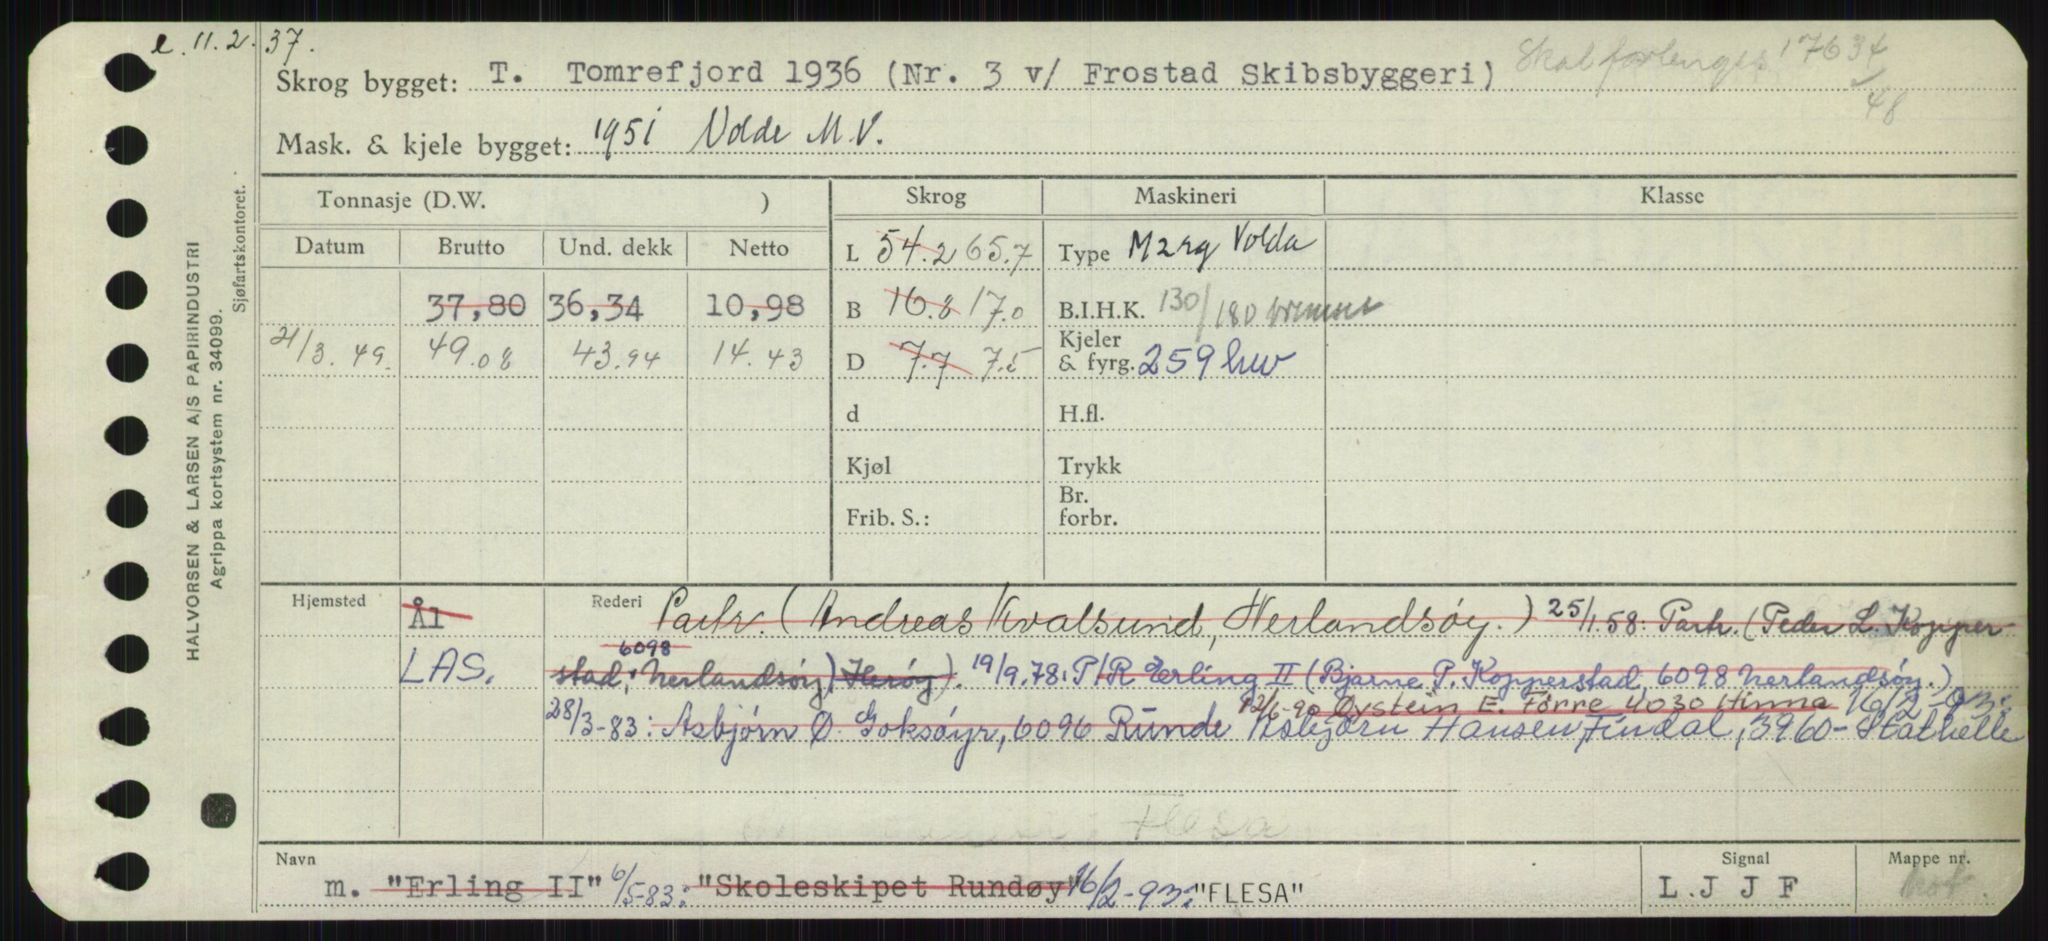 e. 11.2.37.
Skrog bygget: T. Tomrefjord 1936 (Nr. 3 v/ Frostad Skibsbyggeri) Skal forlenges 17634
48
Mask. & kjele bygget: 1951 Volde M.V.
Tonnasje (D.W. ) Skrog Maskineri Klasse
Datum Brutto Und. dekk Netto L 54.2 65.7 Type Marg Volda
37,80 36,34 10,98 B 16.8 17.0 B.I.H.K. 130/180 bremse
21/3.49. 49.08 43.94 14.43 D 7.7 7.5 Kjeler & fyrg. 259 bw
d H.fl.
Kjøl Trykk
Frib. S.: Br. forbr.
Hjemsted Ål Rederi Partr. (Andreas Kvalsund, Nerlandsøy.) 25/1.58: Partr. (Peder L. Kopper-
LAS. stad, 6098 Nerlandsøy) Herøy). 19/9.78: P/R Erling II (Bjarne P. Kopperstad, 6098 Nerlandsøy.)
12/6-90 Øystein E. Førre 4030 Hinna 16/2-93:
28/3-83: Asbjørn Ø. Goksøyr, 6096 Runde Asbjørn Hansen Findal, 3960 - Stathelle
Flesa
Navn m. "Erling II" 6/5-83: "Skoleskipet Rundøy" 16/2-93: "FLESA"
Signal L J J F
Mappe nr.
HALVORSEN & LARSEN A/S PAPIRINDUSTRI
Agrippa kortsystem nr. 34099.
Sjøfartskontoret.